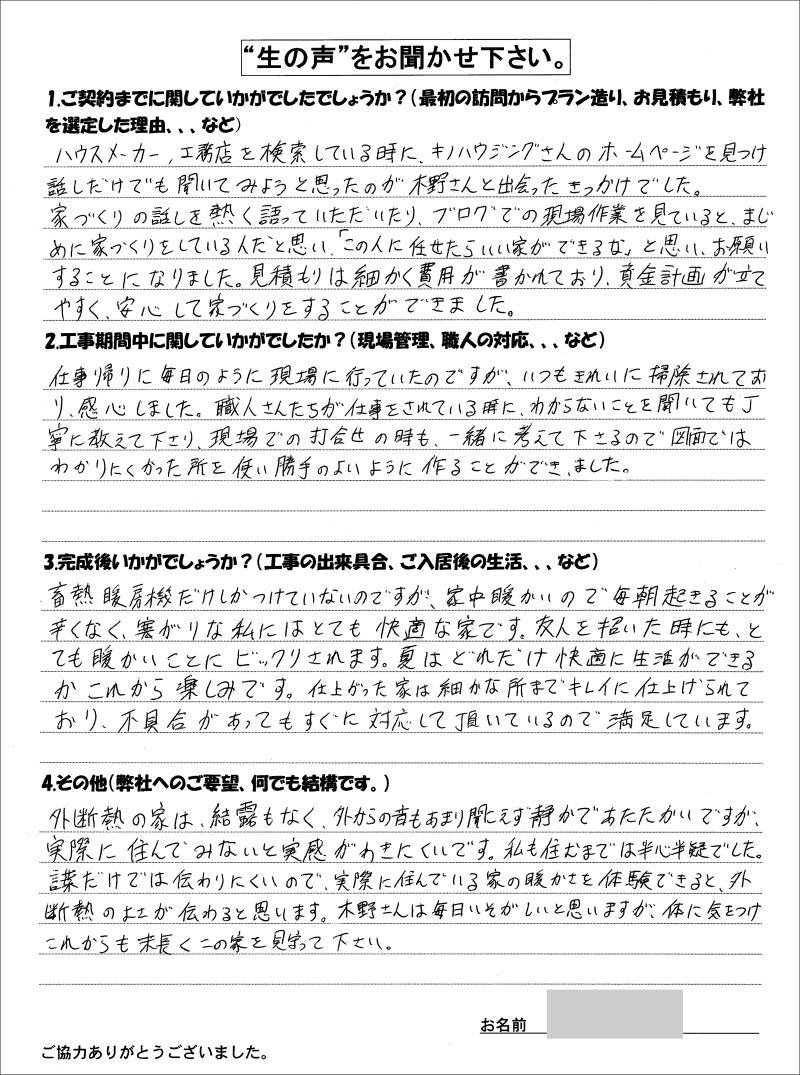 “生の声”をお聞かせ下さい。
1.ご契約までに関していかがでしたでしょうか？（最初の訪問からプラン造り、お見積もり、弊社
を選定した理由、、、など）
ハウスメーカー，工務店を検索している時に、キノハウジングさんのホームページを見つけ
話しだけでも聞いてみようと思ったのが木野さんと出会ったきっかけでした。
家づくりの話しを熱く語っていただいたり、ブログでの現場作業を見ていると、まじ
めに家づくりをしている人だと思い、「この人に任せたらいい家ができるな」と思い、お願い
することになりました。見積もりは細かく費用が書かれており、資金計画が立て
やすく、安心して家づくりをすることができました。
2.工事期間中に関していかがでしたか？（現場管理、職人の対応、、、など）
仕事帰りに毎日のように現場に行っていたのですが、いつもきれいに掃除されてお
り、感心しました。職人さんたちが仕事をされている時に、わからないことを聞いても丁
寧に教えて下さり、現場での打合せの時も、一緒に考えて下さるので図面では
わかりにくかった所を使い勝手のよいように作ることができ、ました。
3.完成後いかがでしょうか？（工事の出来具合、ご入居後の生活、、、など）
畜熱暖房機だけしかつけていないのですが、家中暖かいので毎朝起きることが
辛くなく、寒がりな私にはとても快適な家です。友人を招いた時にも、と
ても暖かいことにビックリされます。夏はどれだけ快適に生活ができる
かこれから楽しみです。仕上がった家は細かな所までキレイに仕上げられて
おり、不具合があってもすぐに対応して頂いているので満足しています。
4.その他（弊社へのご要望、何でも結構です。）
外断熱の家は、結露もなく、外からの音もあまり聞こえず静かであたたかいですが、
実際に住んでみないと実感がわきにくいです。私も住むまでは半心半疑でした。
言葉だけでは伝わりにくいので、実際に住んでいる家の暖かさを体験できると、外
断熱のよさが伝わると思います。木野さんは毎日いそがしいと思いますが、体に気をつけ
これからも末長くこの家を見守って下さい。
お名前
ご協力ありがとうございました。